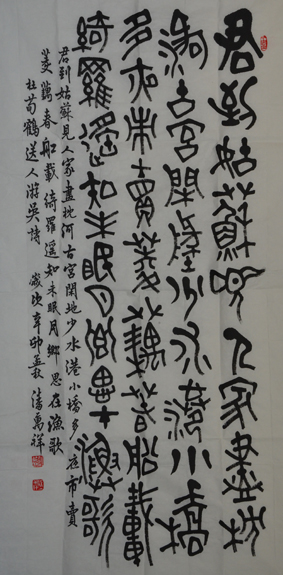 君到姑蘇見人家盡枕
河古宮閒地少水港小橋
多夜市賣菱藕春船載
綺羅遙知未眠月鄉思在漁歌
君到姑蘇見人家盡枕河古宮閒地少水港小橋多夜市賣
菱藕春船載綺羅遙知未眠月鄉思在漁歌
杜荀鶴送人游吳詩 歲次辛卯孟秋 潘萬祥